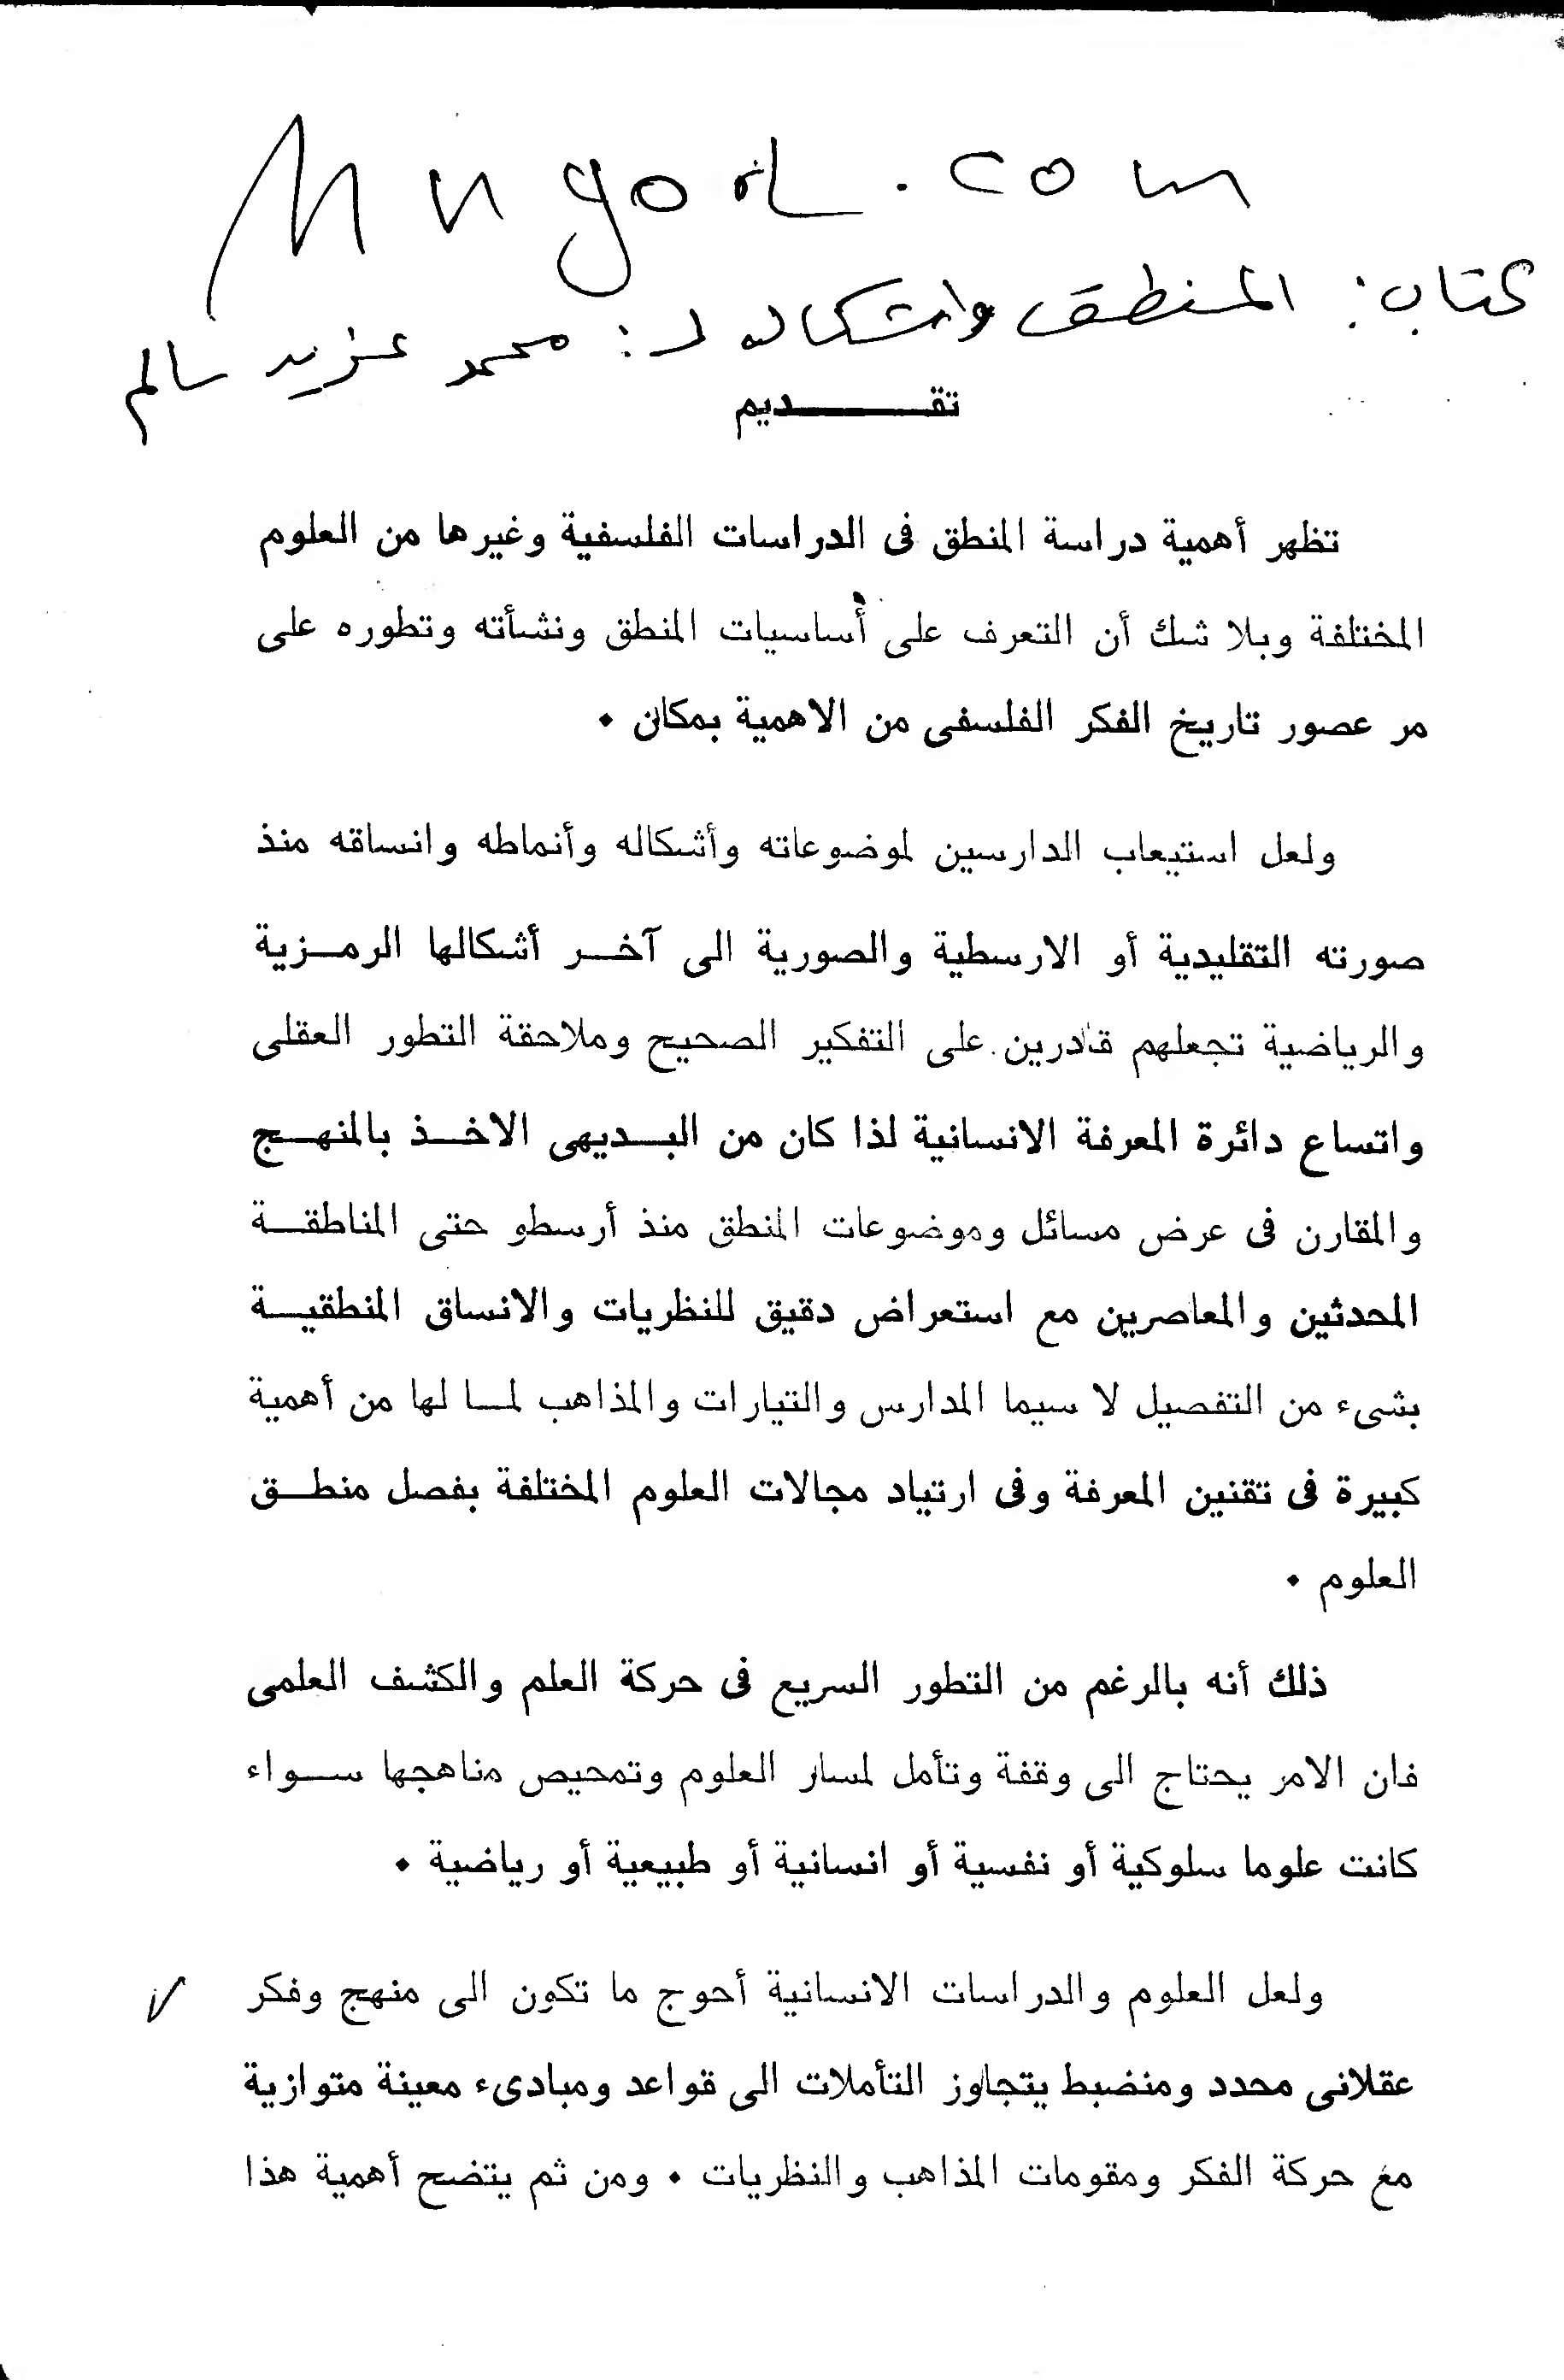 كتاب: المنطق واشكاله لـ: محمد عزيد سالم
تقـــــــديم
تظهر أهمية دراسة المنطق فى الدراسات الفلسفية وغيرها من العلوم
المختلفة وبلا شك أن التعرف على أساسيات المنطق ونشأته وتطوره على
مر عصور تاريخ الفكر الفلسفى من الاهمية بمكان ٠
ولعل استيعاب الدارسين لموضوعاته وأشكاله وأنماطه وانساقه منذ
صورته التقليدية أو الارسطية والصورية الى آخـر أشكالها الرمـزية
والرياضية تجعلهم قادرين على التفكير الصحيح وملاحقة التطور العقلى
واتساع دائرة المعرفة الانسانية لذا كان من البـديهى الاخـذ بالمنهـج
والمقارن فى عرض مسائل وموضوعات المنطق منذ أرسطو حتى المناطقـة
المحدثين والمعاصرين مع استعراض دقيق للنظريات والانساق المنطقيـة
بشىء من التفصيل لا سيما المدارس والتيارات والمذاهب لمـا لها من أهمية
كبيرة فى تقنين المعرفة وفى ارتياد مجالات العلوم المختلفة بفصل منطـق
العلوم ٠
ذلك أنه بالرغم من التطور السريع فى حركة العلم والكشف العلمى
فان الامر يحتاج الى وقفة وتأمل لمسار العلوم وتمحيص مناهجها سـواء
كانت علوما سلوكية أو نفسية أو انسانية أو طبيعية أو رياضية ٠
ولعل العلوم والدراسات الانسانية أحوج ما تكون الى منهج وفكر
عقلانى محدد ومنضبط يتجاوز التأملات الى قواعد ومبادىء معينة متوازية
مع حركة الفكر ومقومات المذاهب والنظريات ٠ ومن ثم يتضح أهمية هذا